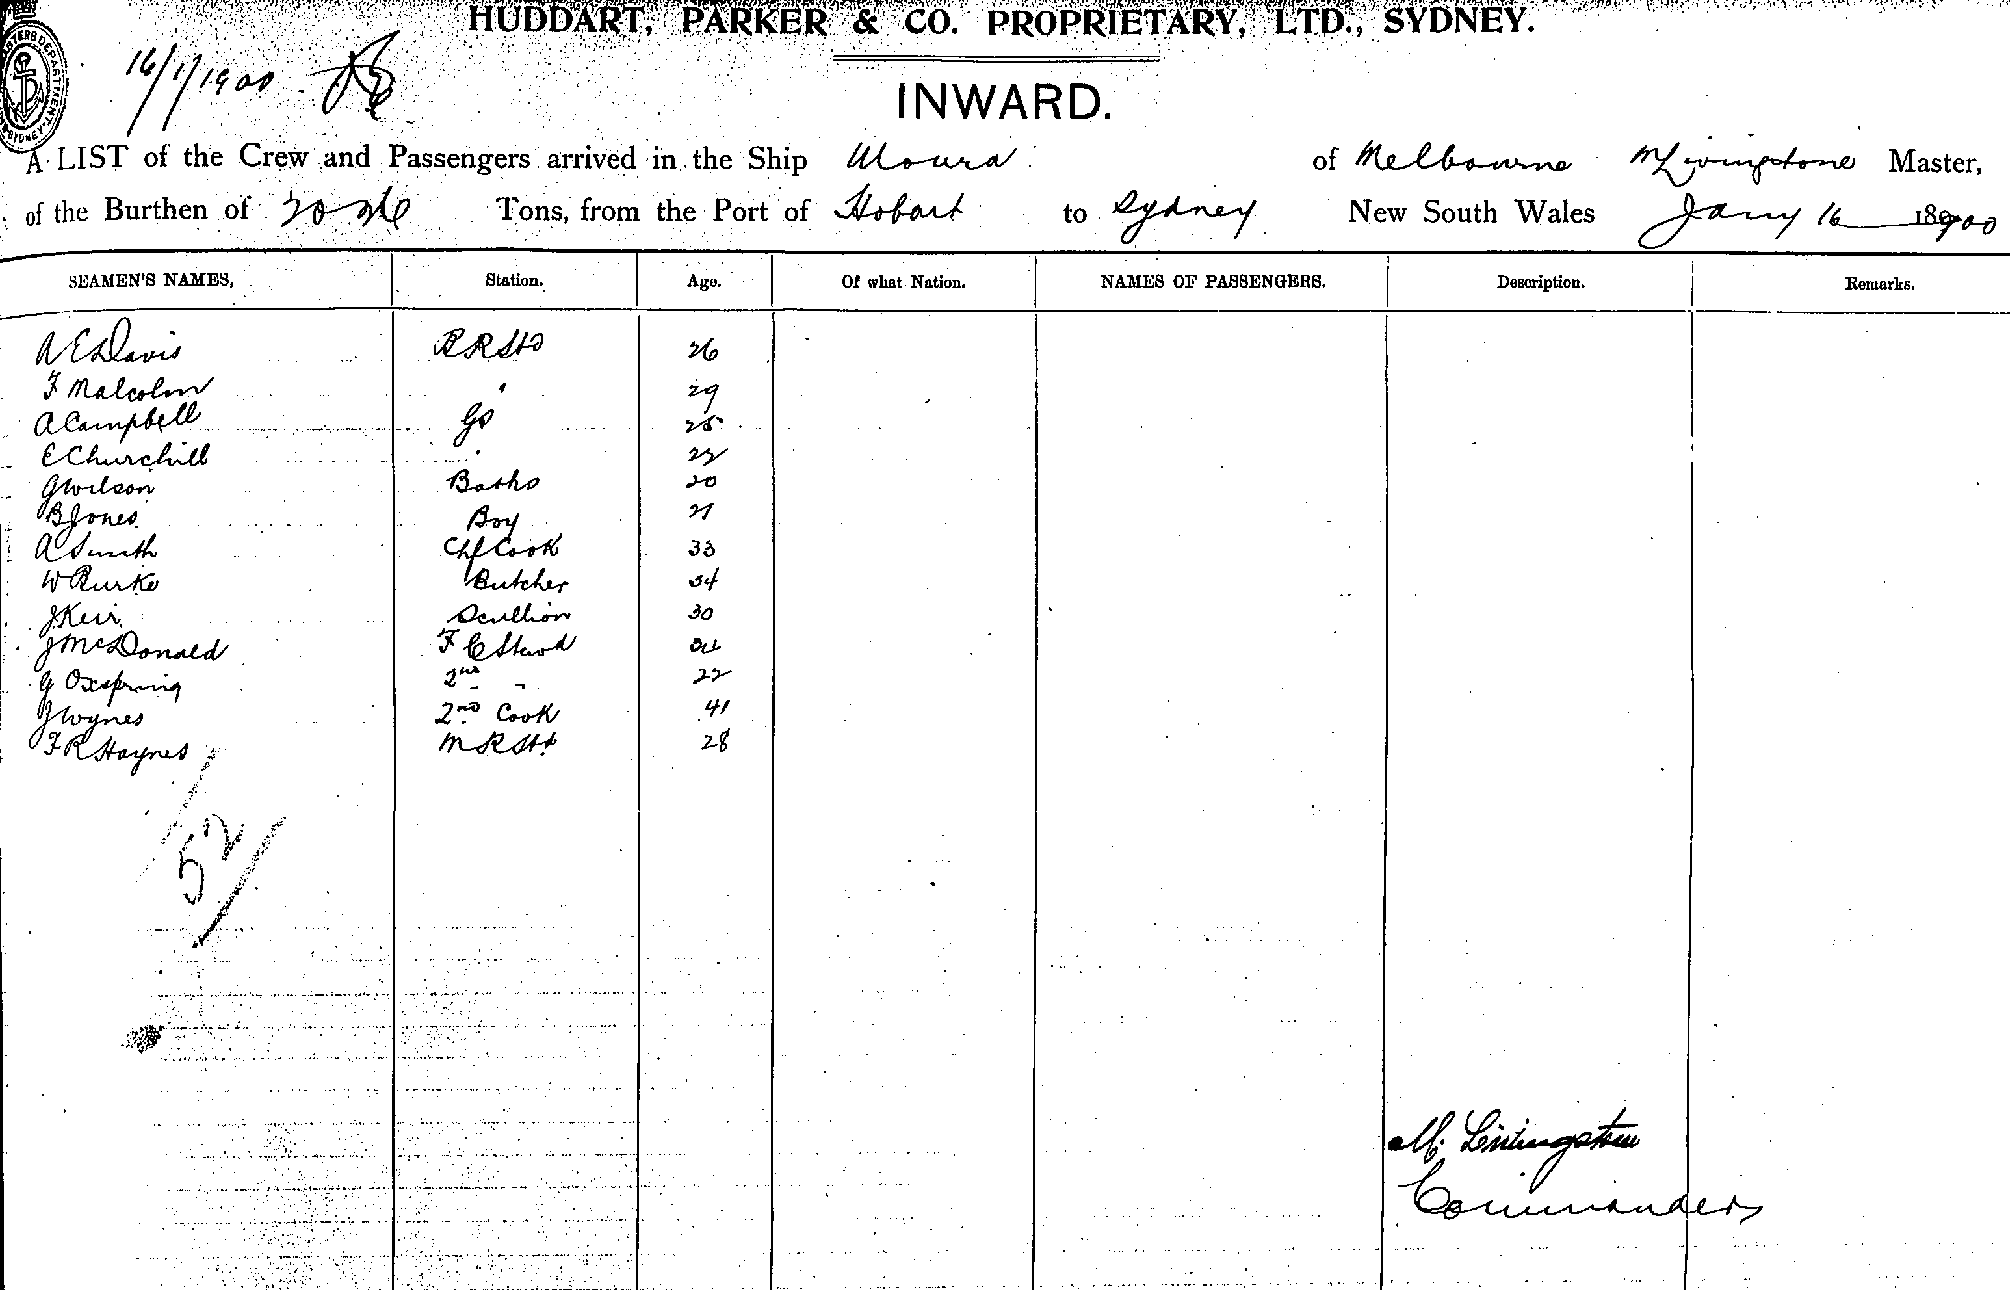 HUDDART, PARKER & CO. PROPRIETARY, LTD., SYDNEY.
16/1/1900
INWARD.
A LIST of the Crew and Passengers arrived in the Ship of Melbourne M Livingstone Master,
of the Burthen of Tons, from the Port of Hobart to Sydney New South Wales Jany 16 1900
SEAMEN'S NAMES, Station. Age. Of what Nation. NAMES OF PASSENGERS. Description. Remarks.
A E Davis 26
F Malcolm " 29
A Campbell 25
E Churchill " 22
G Wilson Baths 20
B Jones Boy 21
A Smith Chf Cook 33
W Burke Butcher 34
J Keir Scullion 30
J McDonald F C Stwd
G Oxspring 2nd " " 22
J Wynes 2nd Cook 41
F R Haynes 28
52
M. Livingstone
Commander